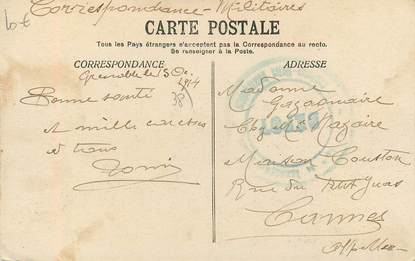 Correspondance-Militaires
6€
CARTE POSTALE
Tous les Pays étrangers n'acceptent pas la Correspondance au recto.
Se renseigner à la Poste.
CORRESPONDANCE
ADRESSE
Grenoble le 3 De. 1914
(38)
Bonne santé
et mille caresses
à tous
Madame
Chez Mr Nazaire
Maison Couston
Rue du Petit Juas
Cannes
Alp Mar